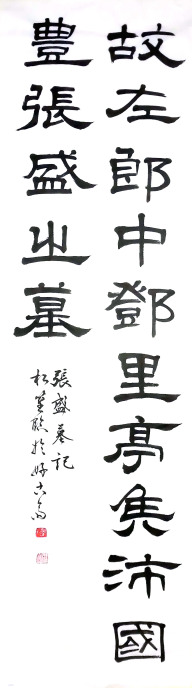 故左郎中鄧里亭侯沛國
豊張盛之墓
張盛墓記
松臨於好古